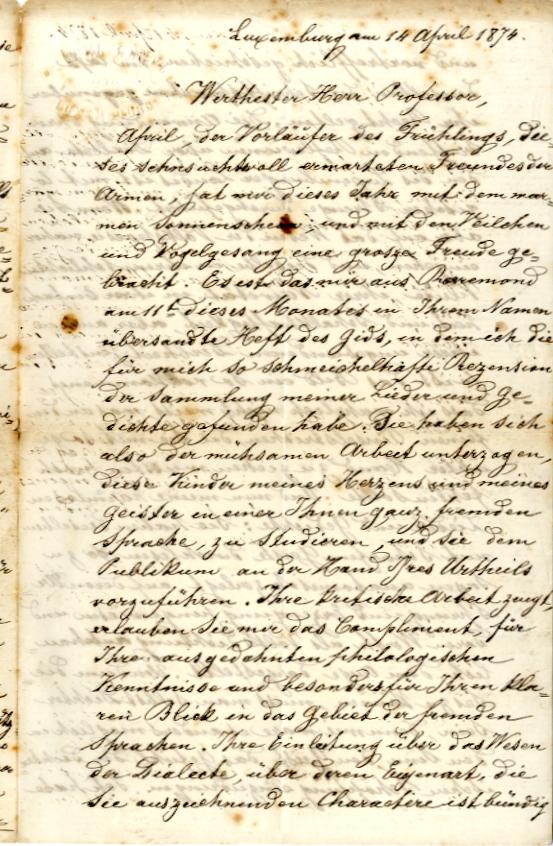 Luxemburg am 14 April 1874.
Werthester Herr Professor,
April, der Vorläufer des Frühlings, die-
ses sehnsuchtvoll erwarteten Freundes der
Armen, hat mir dieses Jahr mit dem war-
men Sonnenschein, und mit den Veilchen
und Vogelgesang eine grosze Freude ge-
bracht. Es ist das mir aus Roermond
am 11t. dieses Monates in Ihrem Namen
übersandte Heft des Gids, in dem ich die
für mich so schmeichelhafte Rezension
der Sammlung meiner Lieder und Ge-
dichte gefunden habe. Sie haben sich
also der mühsamen Arbeit unterzogen,
diese Kinder meines Herzens und meines
Geistes in einer Ihnen ganz fremden
Sprache, zu studieren, und sie dem
Publikum an der Hand Ihres Urtheils
vorzuführen. Ihre kritische Arbeit zeugt
erlauben Sie mir das Compliment, für
Ihre ausgedehnten philologischen
Kenntnisse und besonders für Ihren kla-
ren Blick in das Gebiet der fremden
Sprachen. Ihre Einleitung über das Wesen
der Dialecte, über deren Eigenart, die
sie auszeichnenden Charactère ist bündig